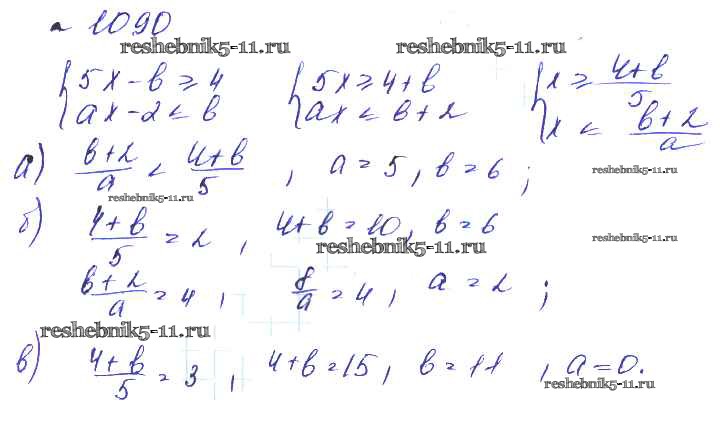 № 1090
reshebnik5-11.ru reshebnik5-11.ru
{5x - b ≥ 4 {5x ≥ 4+b {x ≥ (4+b)/5
{ax - 2 < b {ax < b+2 {x < (b+2)/a
а) (b+2)/a < (4+b)/5, a = 5, b = 6;
reshebnik5-11.ru reshebnik5-11.ru
б) (4+b)/5 = 2, 4+b = 10, b = 6
reshebnik5-11.ru reshebnik5-11.ru
(b+2)/a = 4, 8/a = 4, a = 2;
reshebnik5-11.ru
в) (4+b)/5 = 3, 4+b = 15, b = 11, a = 0.
reshebnik5-11.ru